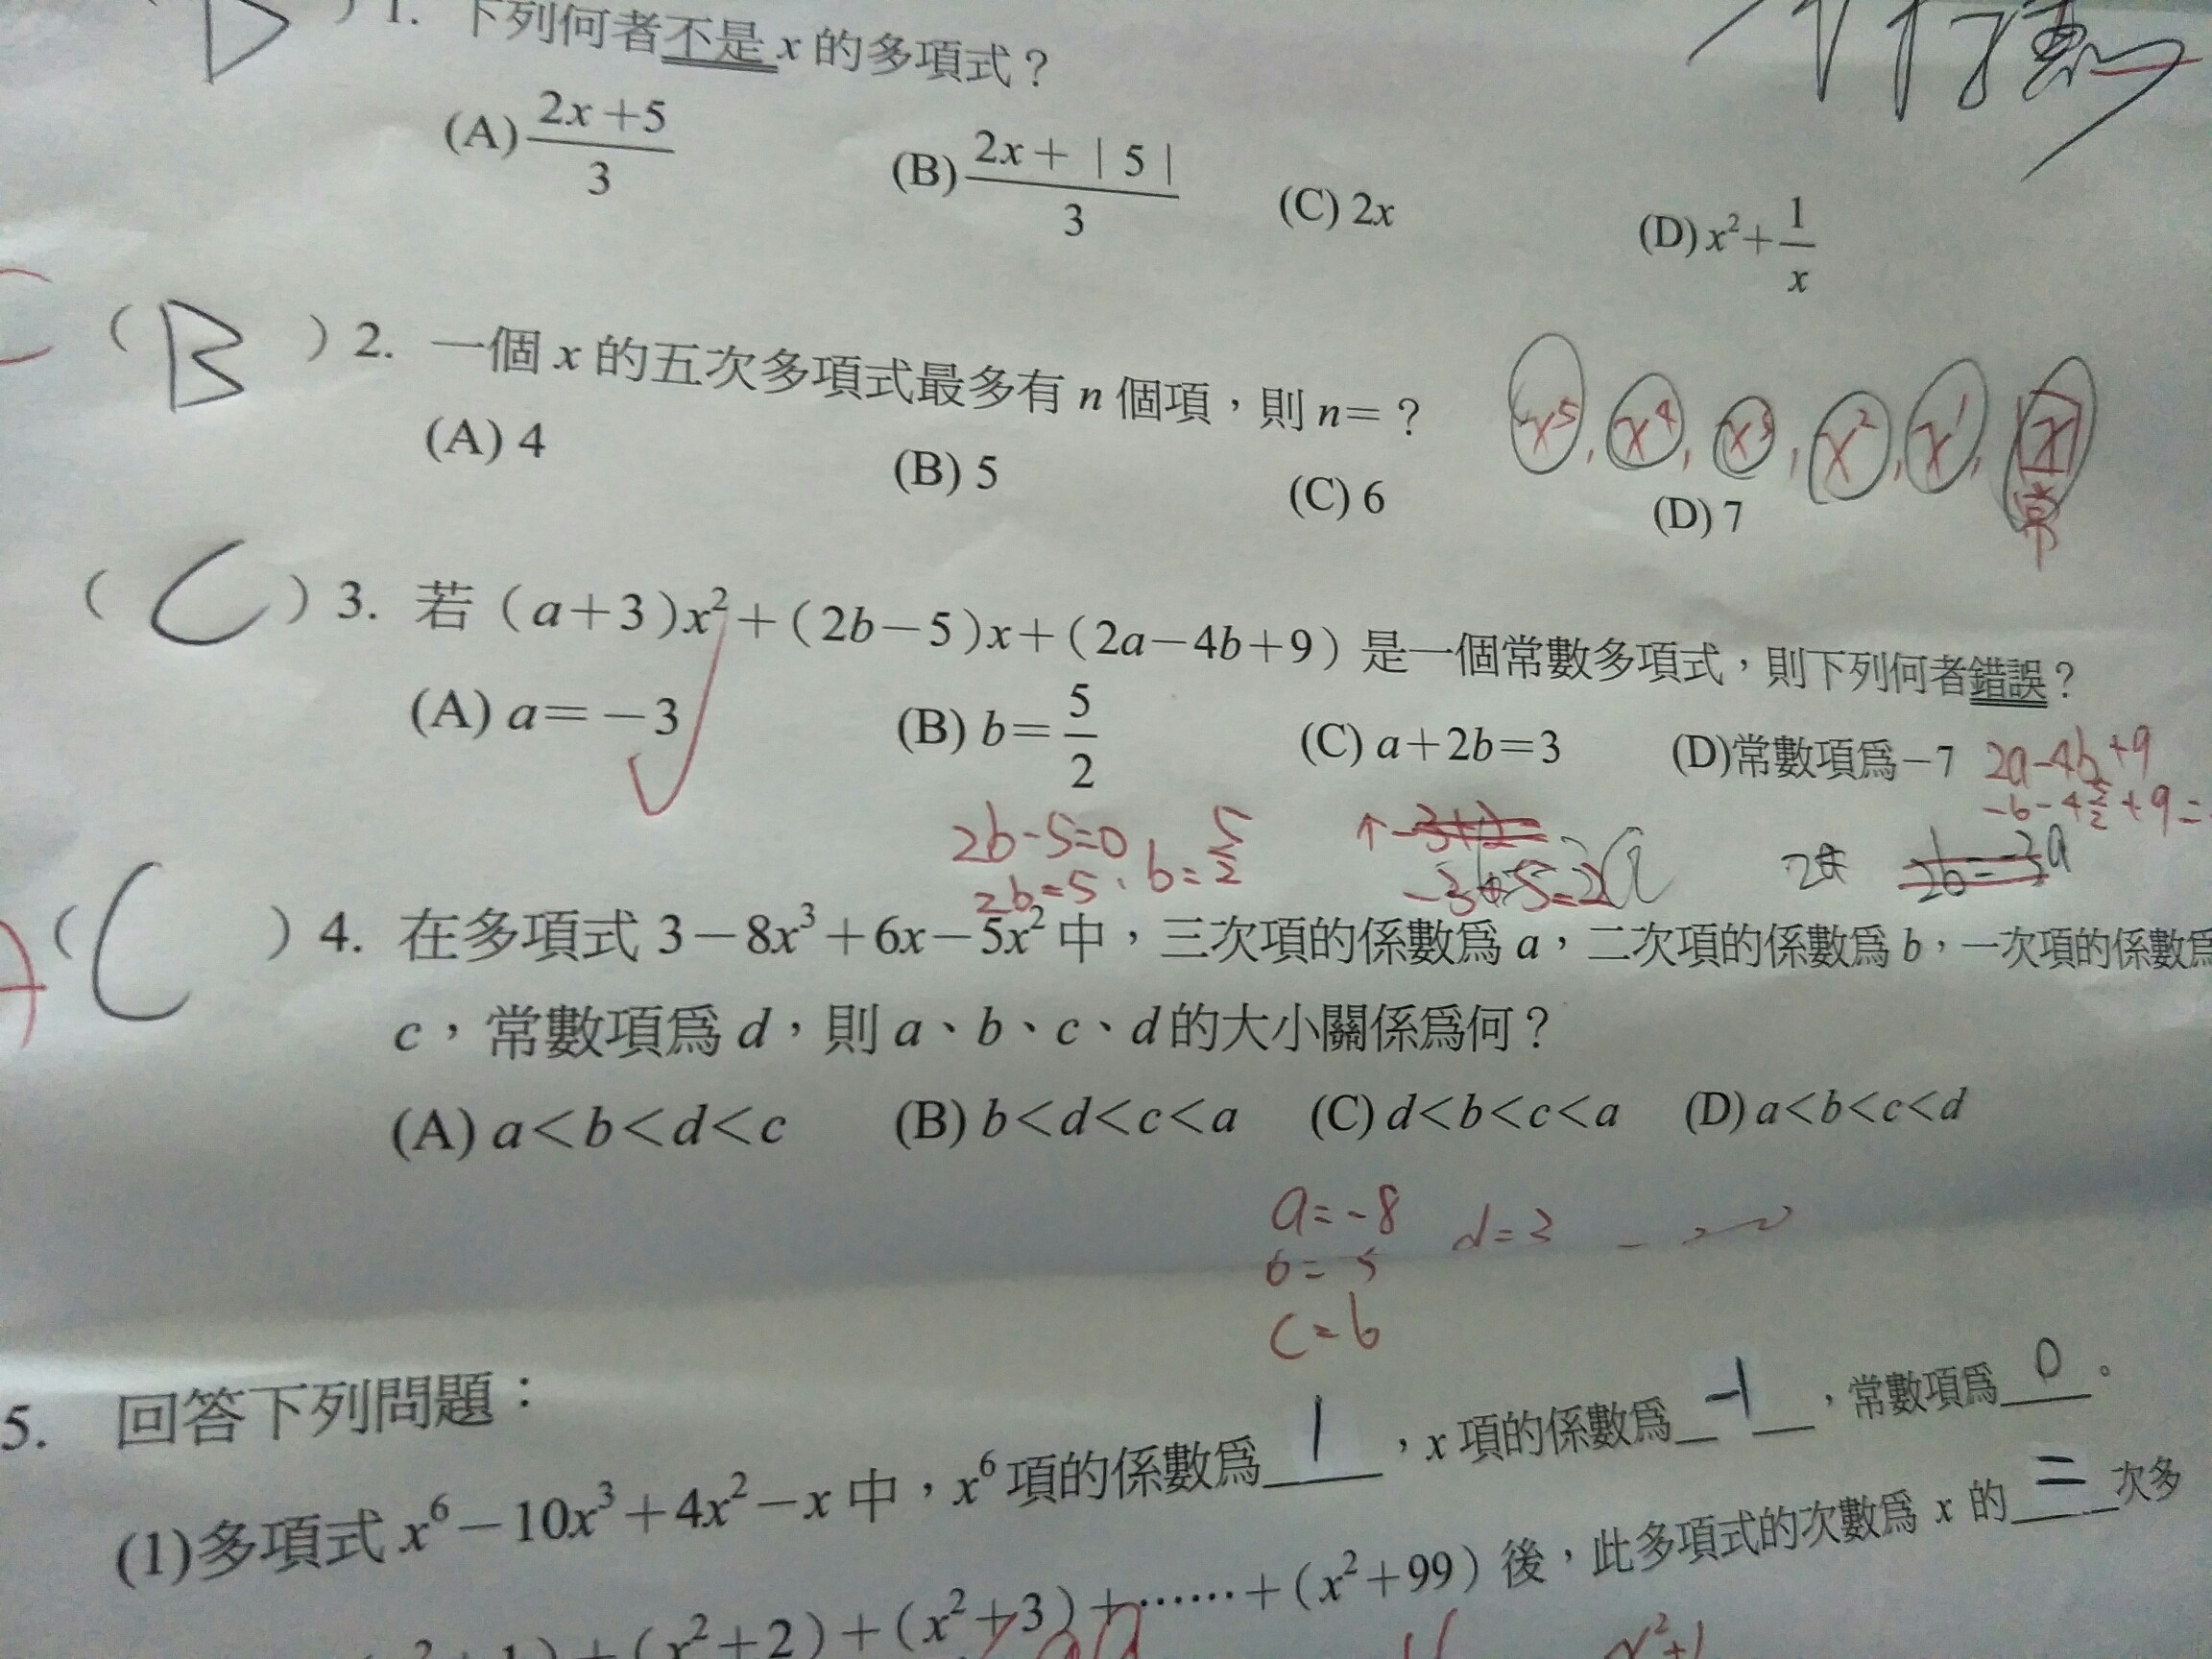 D ) 1. 下列何者不是 x 的多項式？
(A) \frac{2x+5}{3} (B) \frac{2x+|5|}{3} (C) 2x (D) x²+\frac{1}{x}
( B ) 2. 一個 x 的五次多項式最多有 n 個項，則 n=？
x⁵, x⁴, x³, x², x¹,
常
(A) 4 (B) 5 (C) 6 (D) 7
( C ) 3. 若（a+3)x²+（2b-5)x+（2a-4b+9）是一個常數多項式，則下列何者錯誤？
(A) a=-3 (B) b=\frac{5}{2} (C) a+2b=3 (D)常數項為-7
2a-4b+9
-6-4\frac{5}{2}+9=
2b-5=0
2b=5, b=\frac{5}{2}
( C ) 4. 在多項式 3-8x³+6x-5x² 中，三次項的係數為 a，二次項的係數為 b，一次項的係數為
c，常數項為 d，則 a、b、c、d 的大小關係為何？
(A) a<b<d<c (B) b<d<c<a (C) d<b<c<a (D) a<b<c<d
a=-8 d=3
c=6
5. 回答下列問題：
(1)多項式 x⁶-10x³+4x²-x 中，x⁶ 項的係數為 1，x 項的係數為 -1，常數項為 0。
+（x²+2）+（x²+3）+……+（x²+99）後，此多項式的次數為 x 的 二 次多
x²+1